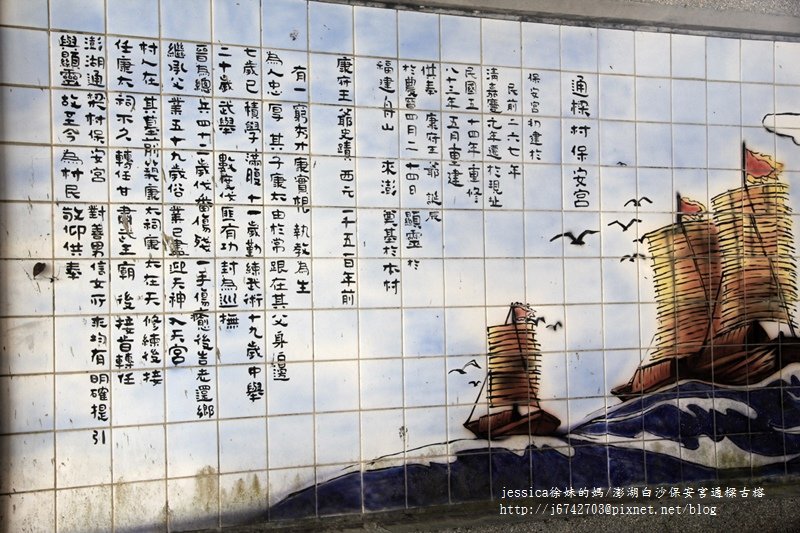 通樑村保安宮
保安宮初建於
民前二六七年
清嘉慶元年遷於現址
民國五十四年重修
八十三年五月重建
供奉 康府王爺 誕辰
於農曆四月二十四日 顯靈於
福建舟山 來澎 奠基於本村
康府王爺史蹟 西元一千五百年前
有一窮秀才康實規 執教為生
為人忠厚 其子康六由於常跟在其父身伯邊
七歲已積學滿腹十一歲勤練武術十九歲中舉
二十歲武舉 數度伐匪有功 封為巡撫
晉為總兵四十二歲伐番傷殘 一手傷癒後告老還鄉
繼承父業五十九歲俗業已盡迎天神 入天宮
村人在其墓前築康六祠康六在天 修練後接
任康六祠不久轉任甘肅六王廟 後接旨轉任
澎湖通樑村保安宮 對善男信女所求均有明確提引
與顯靈 故至今為村民 敬仰供奉
jessica徐妹的媽/澎湖白沙保安宮通樑古榕
http://j6742703@pixnet.net/blog